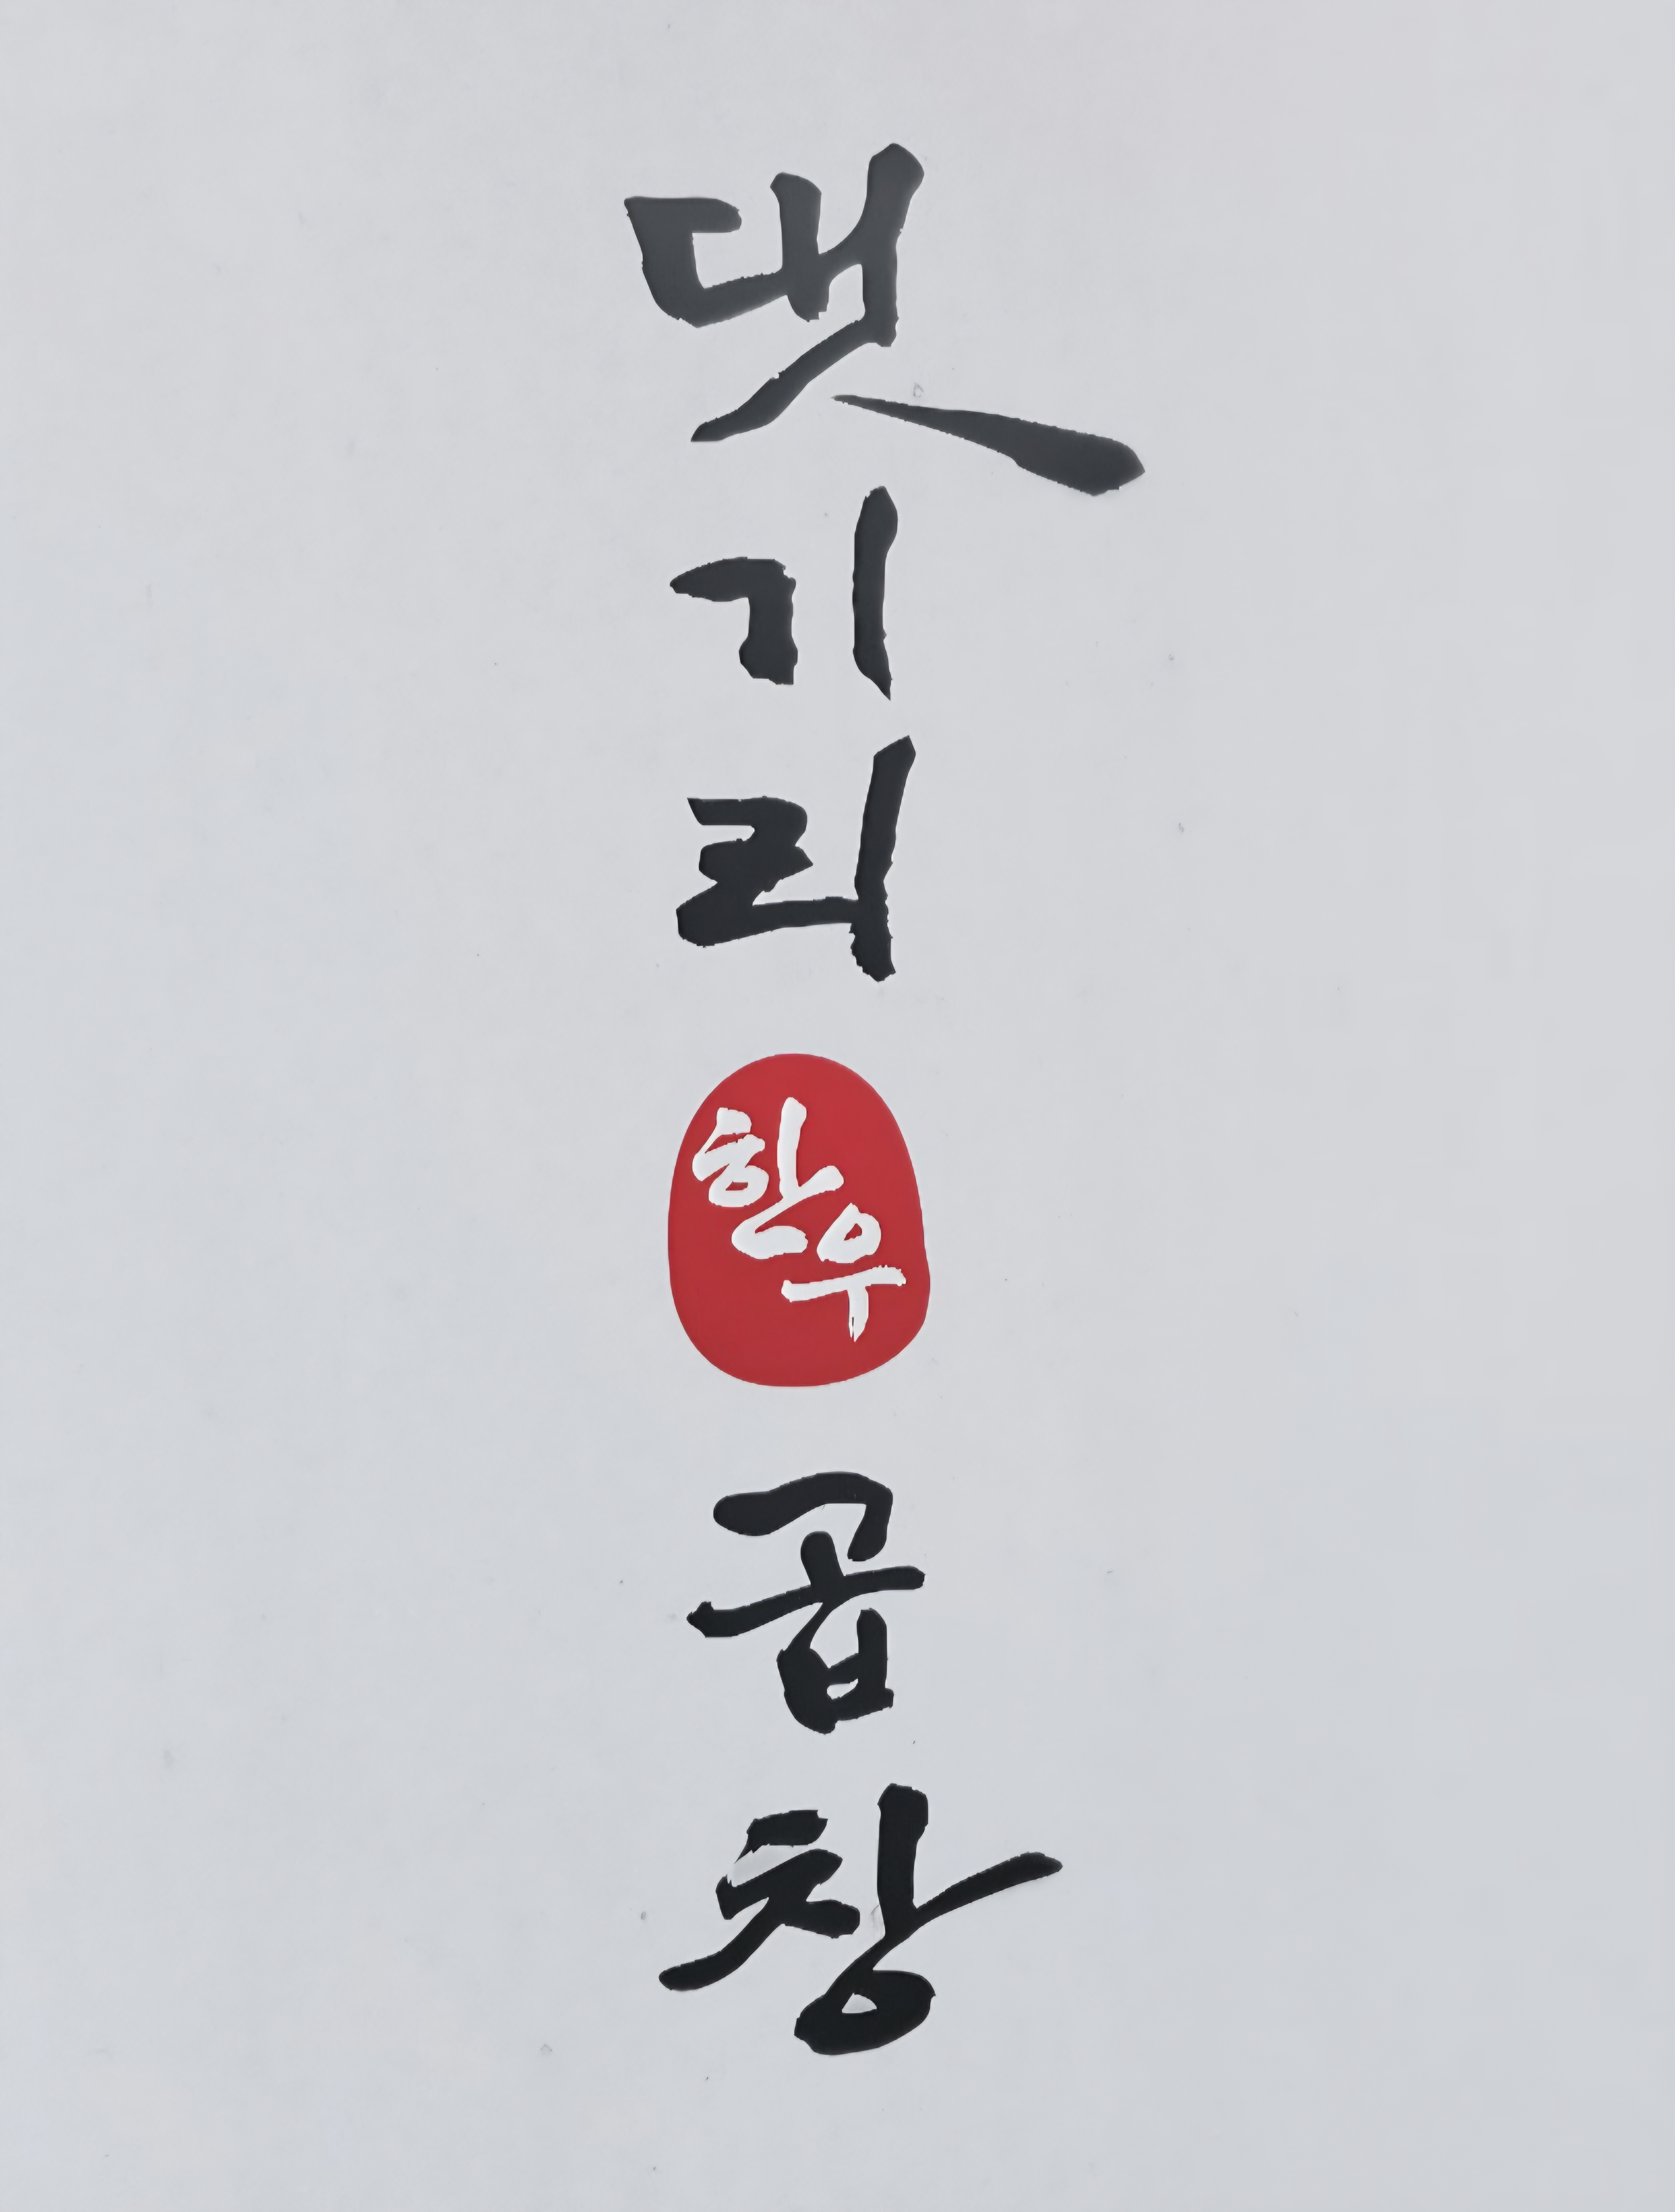 댓기리
한우
곱창